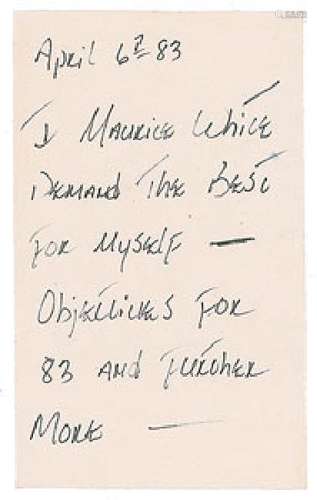 April 6th 83
I Maurice White
Demand The Best
For Myself —
Objectives For
83 And Further
More —